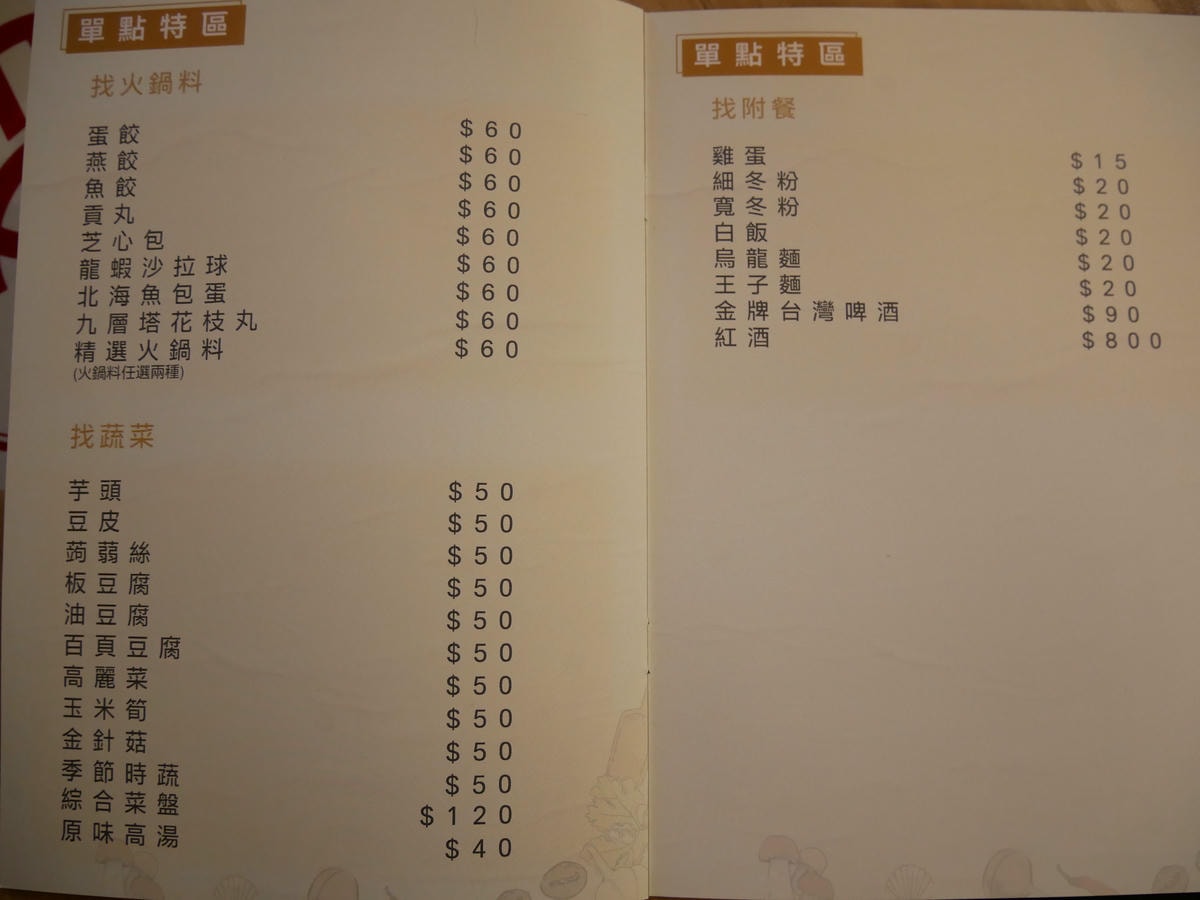 單點特區
找火鍋料
蛋餃 $60
燕餃 $60
魚餃 $60
貢丸 $60
芝心包 $60
龍蝦沙拉球 $60
北海魚包蛋 $60
九層塔花枝丸 $60
精選火鍋料 $60
(火鍋料任選兩種)
找蔬菜
芋頭 $50
豆皮 $50
蒟蒻絲 $50
板豆腐 $50
油豆腐 $50
百頁豆腐 $50
高麗菜 $50
玉米筍 $50
金針菇 $50
季節時蔬 $50
綜合菜盤 $120
原味高湯 $40
單點特區
找附餐
雞蛋 $15
細冬粉 $20
寬冬粉 $20
白飯 $20
烏龍麵 $20
王子麵 $20
金牌台灣啤酒 $90
紅酒 $800